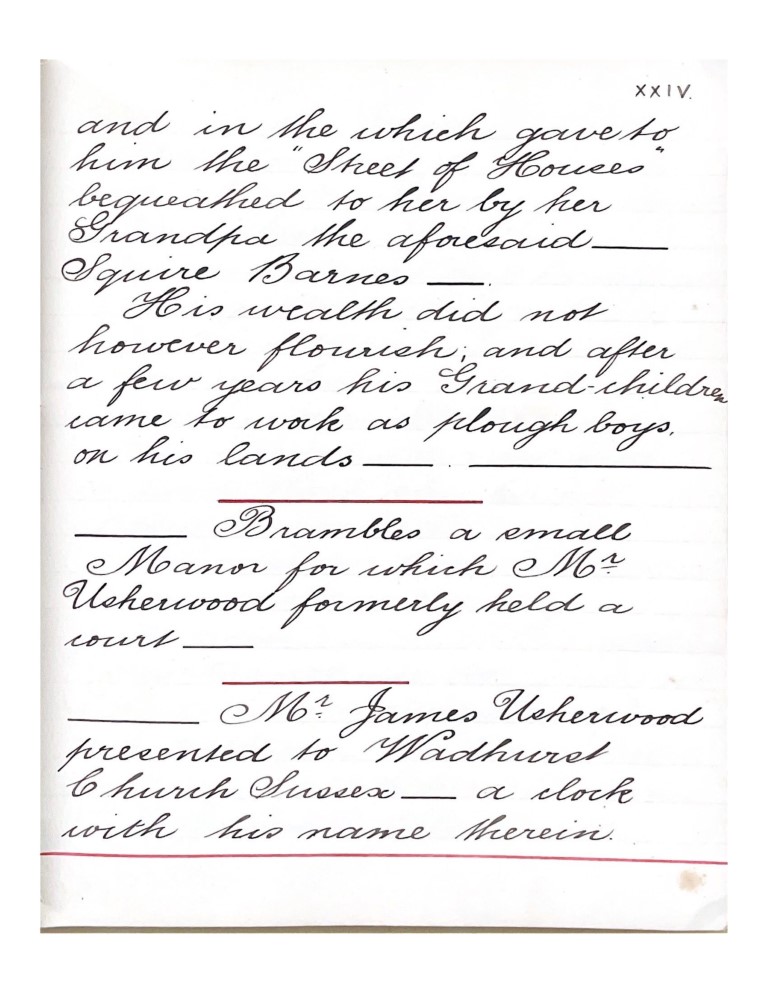 XXIV.
and in the which gave to
him the "Street of Houses"
bequeathed to her by her
Grandpa the aforesaid ——
Squire Barnes —.
His wealth did not
however flourish; and after
a few years his Grand-children
came to work as plough boys.
on his lands —— . ————
—— Brambles a small
Manor for which Mr
Usherwood formerly held a
court ——
—— Mr James Usherwood
presented to Wadhurst
Church Sussex — a clock
with his name therein.